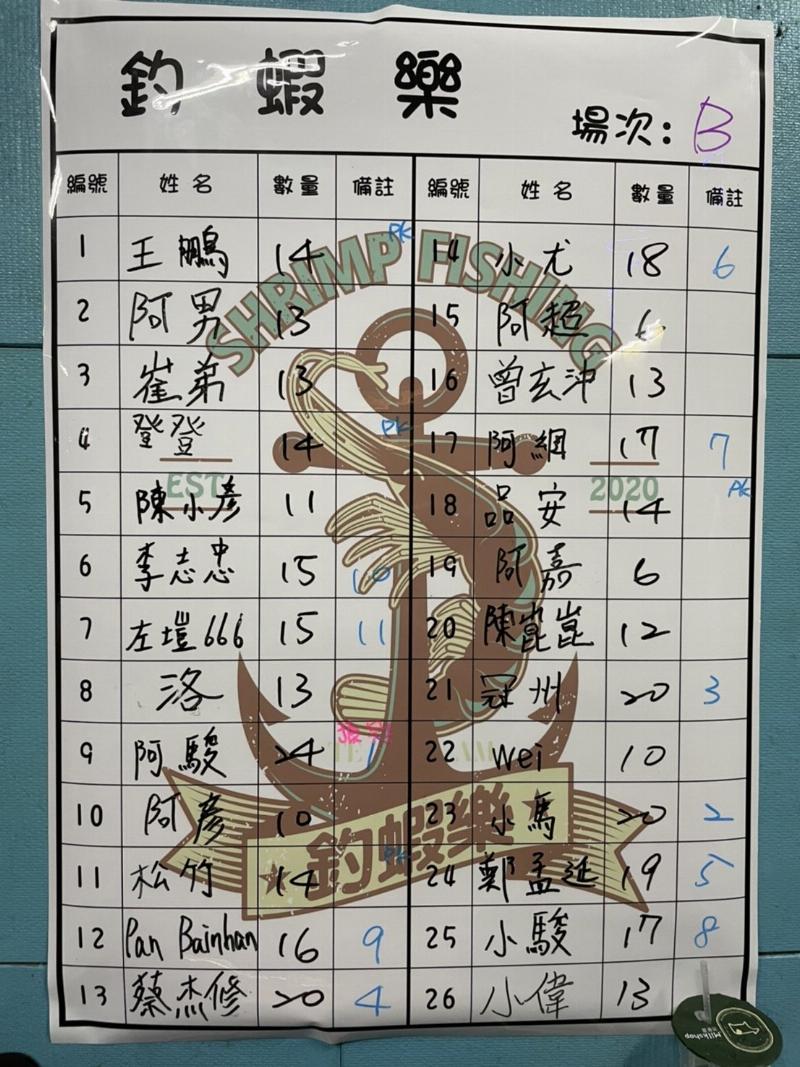 釣蝦樂
場次: B
編號 姓名 數量 備註 編號 姓名 數量 備註
1 王鵬 14 PK 14 小尤 18 6
2 阿男 13 15 阿超 6
3 崔弟 13 16 曾玄沖 13
4 登登 14 PK 17 阿綱 17 7
5 陳小彥 11 18 品安 14 PK
6 李志忠 15 10 19 阿嘉 6
7 左塏666 15 11 20 陳崑崑 12
8 洛 13 21 冠州 20 3
9 阿駿 24 1 22 wei 10
10 阿彥 10 23 小馬 20 2
11 松竹 14 PK 24 鄭孟延 19 5
12 Pan Bainhan 16 9 25 小駿 17 8
13 蔡杰修 20 4 26 小偉 13
SHRIMP FISHING
EST 2020
釣蝦樂
Milkshop